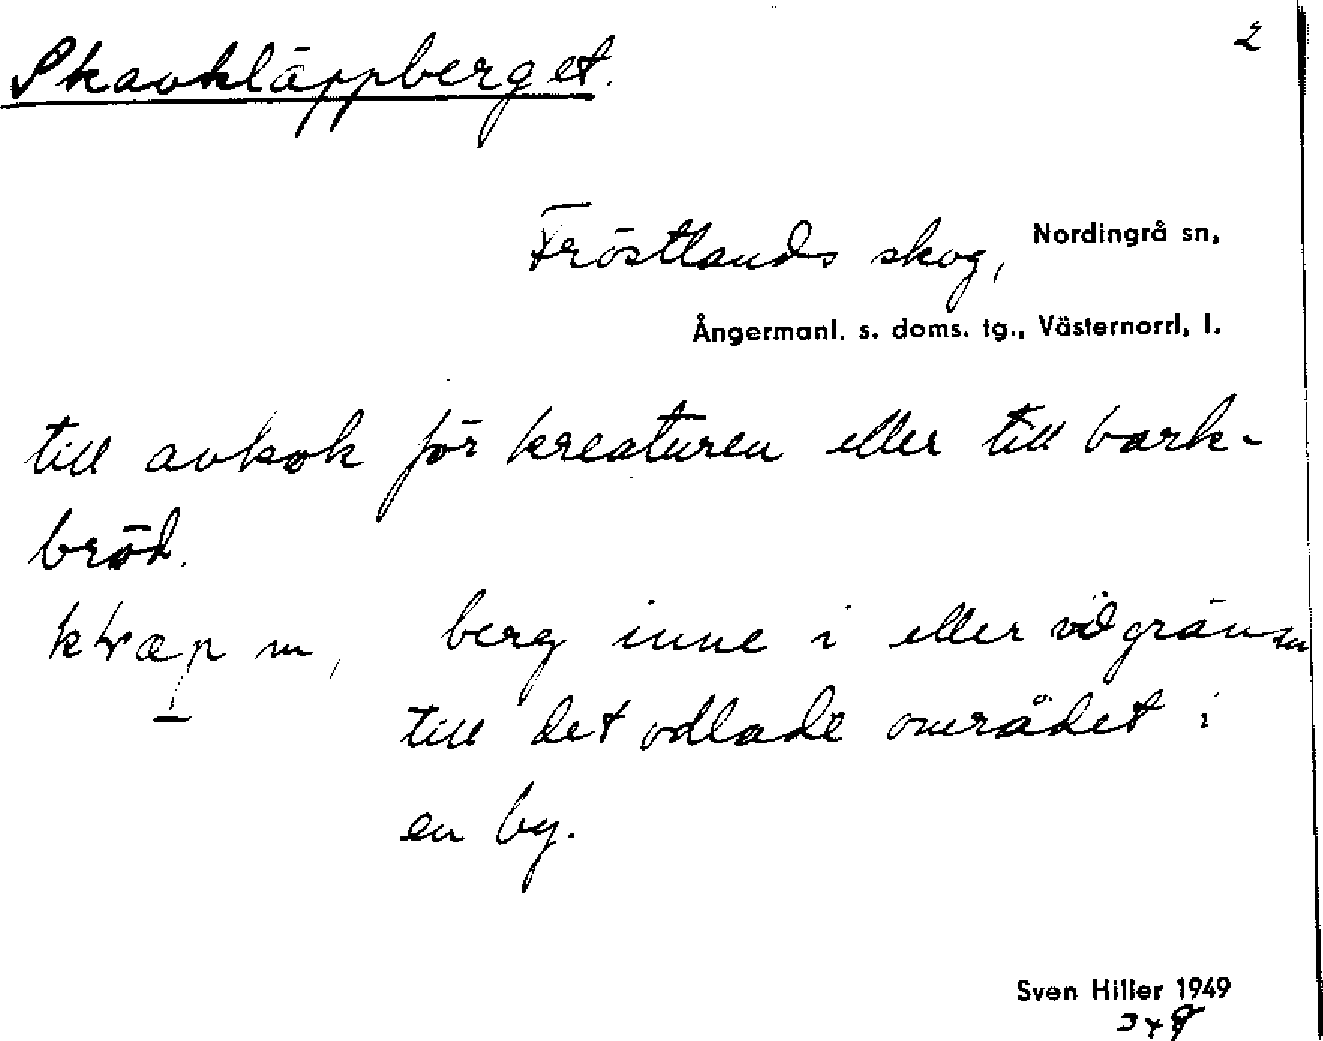 2
Skavkläppberget.
Fröstlands skog, Nordingrå sn,
Ångermanl. s. doms. tg., Västernorrl. l.
till avkok för kreaturen eller till bark-
bröd.
m, berg inne i eller vid gränsen
till det odlade området i
en by.
Sven Hiller 1949